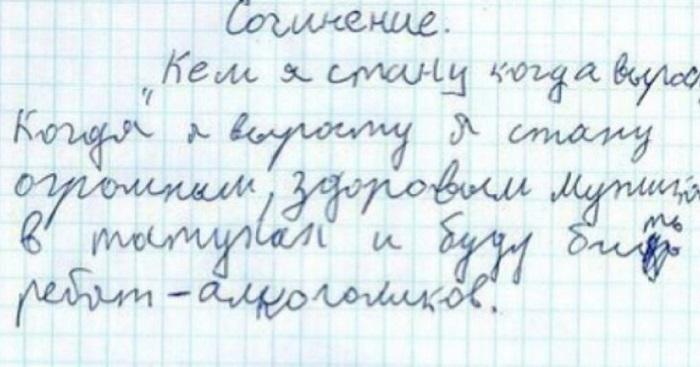 Сочинение.
"Кем я стану когда вырос
Когда я вырасту я стану
огромным, здоровым мужико
в татухах и буду бить
ребят-алкоголиков.